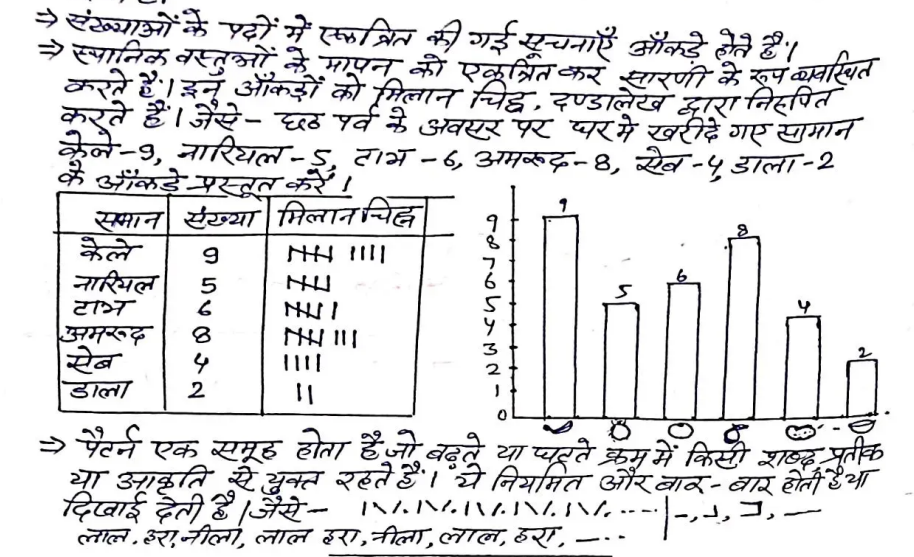 ⇒ संख्याओं के पदों में एकत्रित की गई सूचनाएँ आँकड़े होते है।
⇒ स्थानिक वस्तुओं के मापन को एकत्रित कर सारणी के रूप व्यवस्थित
करते हैं। इन आँकड़ों को मिलान चिह्न, दण्डालेख द्वारा निरूपित
करते हैं। जैसे - छठ पर्व के अवसर पर घर मे खरीदे गए सामान
केले-9, नारियल-5, टाभ-6, अमरूद-8, सेब-4, डाला-2
के आँकड़े प्रस्तुत करें।
समान संख्या मिलान चिह्न
केले 9 𝍸 ||||
नारियल 5 𝍸
टाभ 6 𝍸 |
अमरूद 8 𝍸 |||
सेब 4 ||||
डाला 2 ||
9
8
7
6
5
4
3
2
1
0
9 5 6 8 4 2
⇒ पैटर्न एक समूह होता है जो बढ़ते या घटते क्रम में किसी शब्द, प्रतीक
या आकृति से युक्त रहते हैं। ये नियमित और बार-बार होती है या
दिखाई देती है। जैसे -
लाल, हरा, नीला, लाल हरा, नीला, लाल, हरा, —...